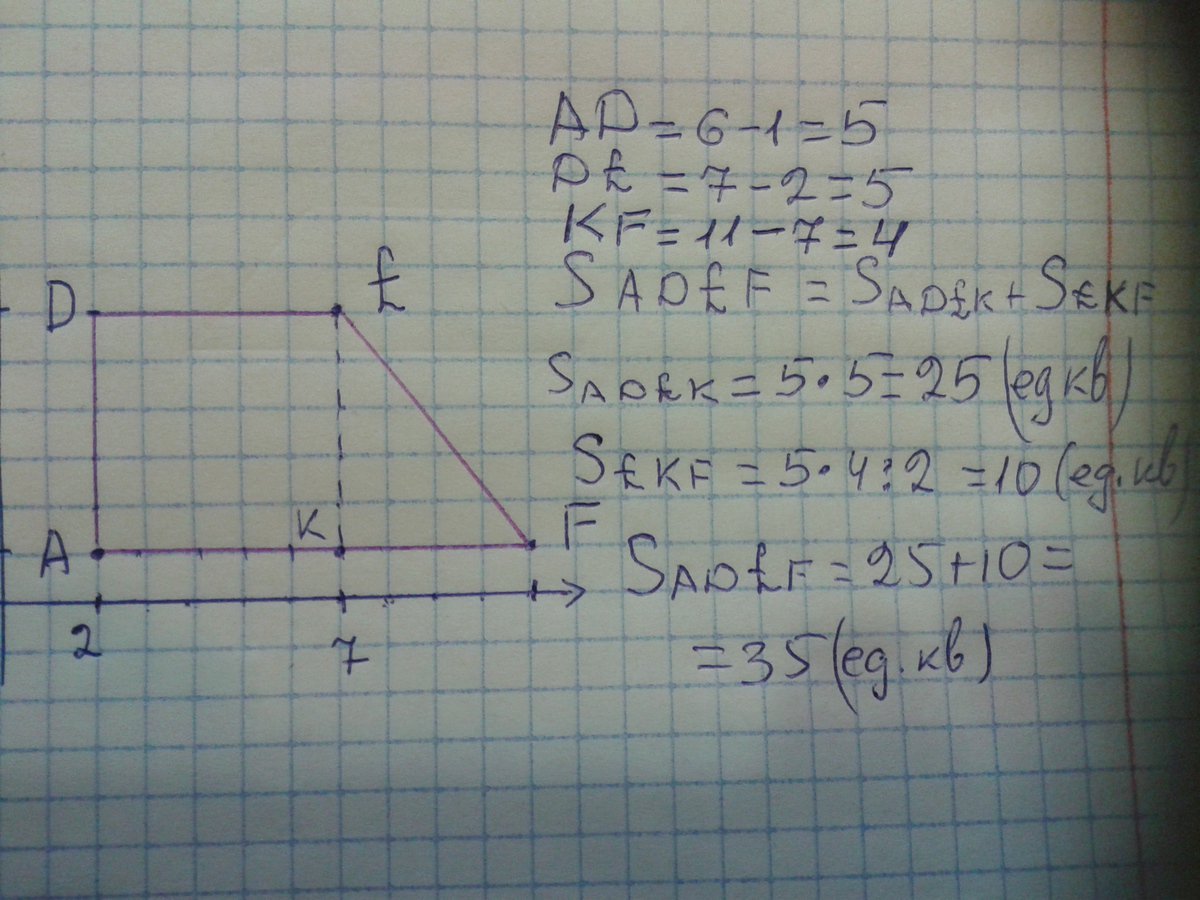 AD = 6 - 1 = 5
D£ = 7 - 2 = 5
KF = 11 - 7 = 4
S AD£F = S AD£K + S £KF
S AD£K = 5 · 5 = 25 (ед кв)
S £KF = 5 · 4 : 2 = 10 (ед. кв)
S AD£F = 25 + 10 =
= 35 (ед. кв)
D £
K F
A
2 7